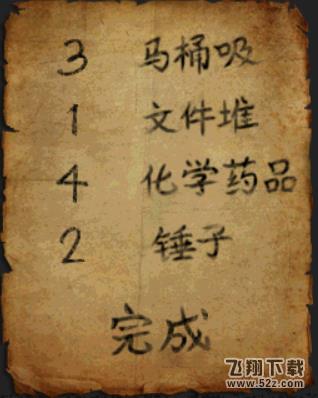 3 马桶吸
1 文件堆
4 化学药品
2 锤子
完成
飞翔下载
www.52z.com